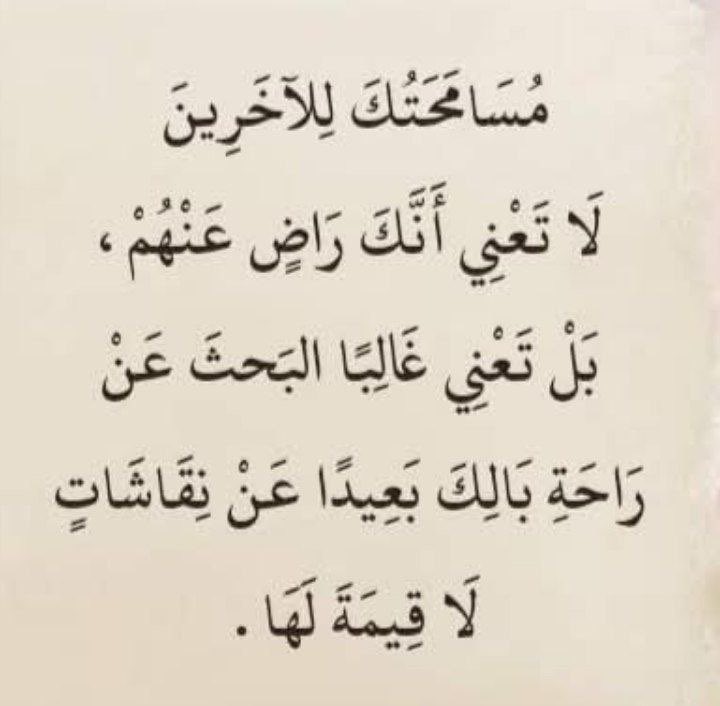 مُسَامَحَتُكَ لِلآخَرِينَ
لَا تَعْنِي أَنَّكَ رَاضٍ عَنْهُمْ ،
بَلْ تَعْنِي غَالِبًا البَحثَ عَنْ
رَاحَةِ بَالِكَ بَعِيدًا عَنْ نِقَاشَاتٍ
لَا قِيمَةَ لَهَا .